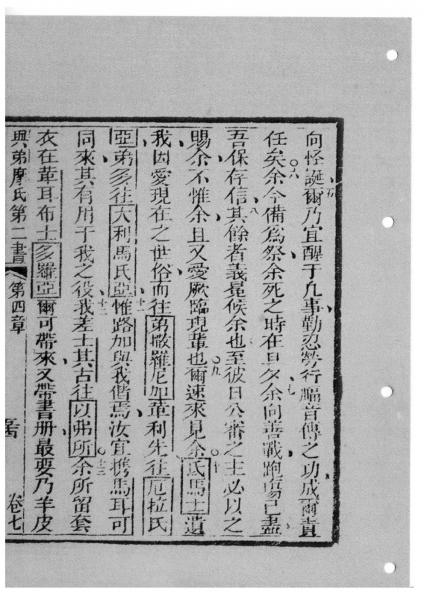 向怪誕爾乃宜醒于凡事勤忍勞行福音傳之功成爾責
任矣余今備爲祭余死之時在旦夕余向善戰跑塲已盡
吾保存信其餘者義冕候余也至彼日公審之主必以之
賜余不惟余且又愛厥臨現輩也爾速來見余氐馬士遺
我因愛現在之世俗而往弟撒羅尼加革利先往厄拉氏
亞弟多往大利馬氐亞惟路加與我偕焉汝宜携馬耳可
同來其有用于我之役我差士其古往以弗所余所留套
衣在革耳布士多羅亞爾可帶來又帶書册最要乃羊皮
與弟摩氐第二書 第四章 卷七